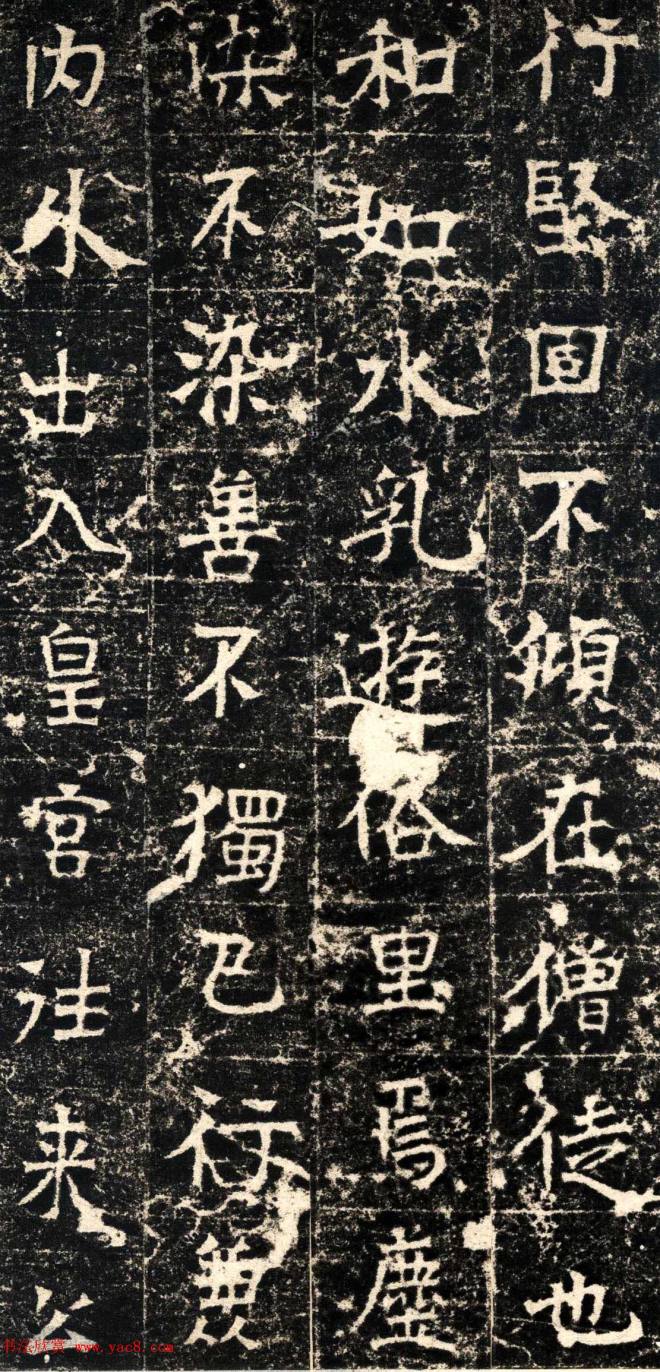 行堅固不傾在僧徒也
和如水乳遊俗里焉塵
染不染善不獨己行無
内外出入皇宫往来公
书法欣赏 www.yac8.com